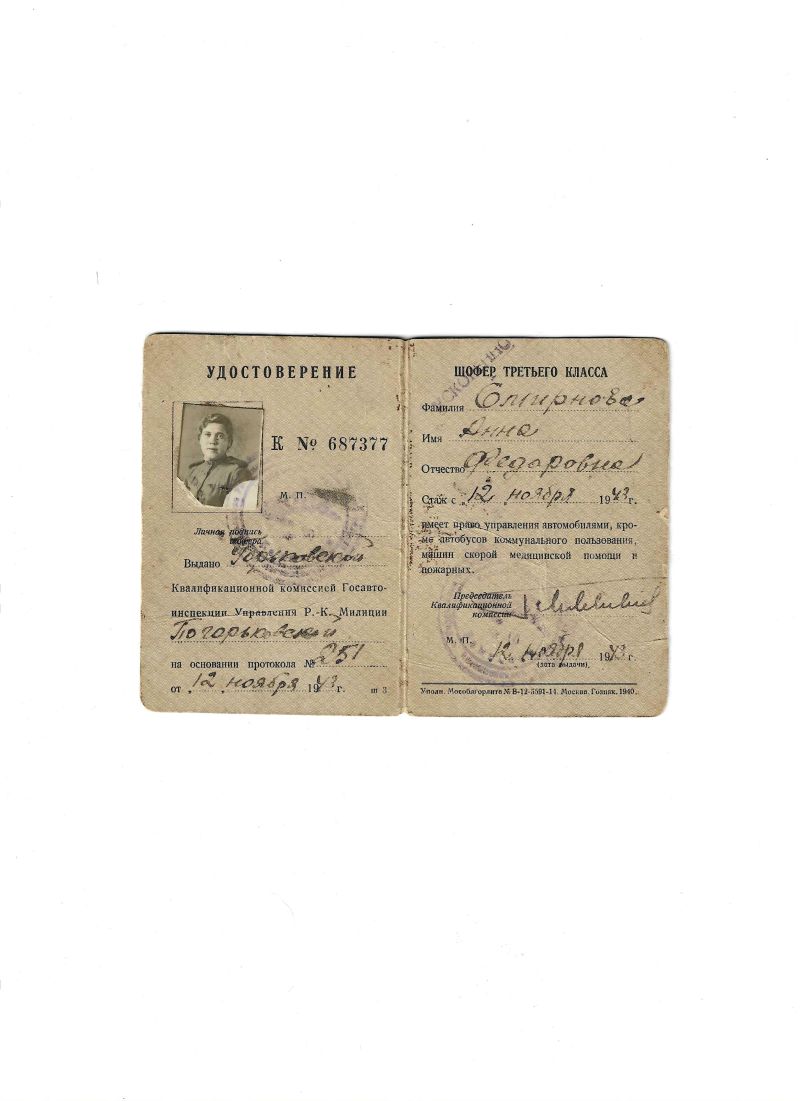 УДОСТОВЕРЕНИЕ
К № 687377
М. П.
Личная подпись
шофера
Выдано Горьковской
Квалификационной комиссией Госавто-
инспекции Управления Р.-К. Милиции
По горьковской
на основании протокола № 251
от 12 ноября 1943 г.
ШОФЕР ТРЕТЬЕГО КЛАССА
Фамилия Смирнова
Имя Анна
Отчество Федаровна
Стаж с „12 ноября 1943 г.
имеет право управления автомобилями, кро-
ме автобусов коммунального пользования,
машин скорой медицинской помощи и
пожарных.
Председатель
Квалификационной
комиссии
М. П. 12 ноября 1943 г.
(дата выдачи)
Уполн. Мособлгорлита № В-12-5591-14. Москва. Гознак. 1940.